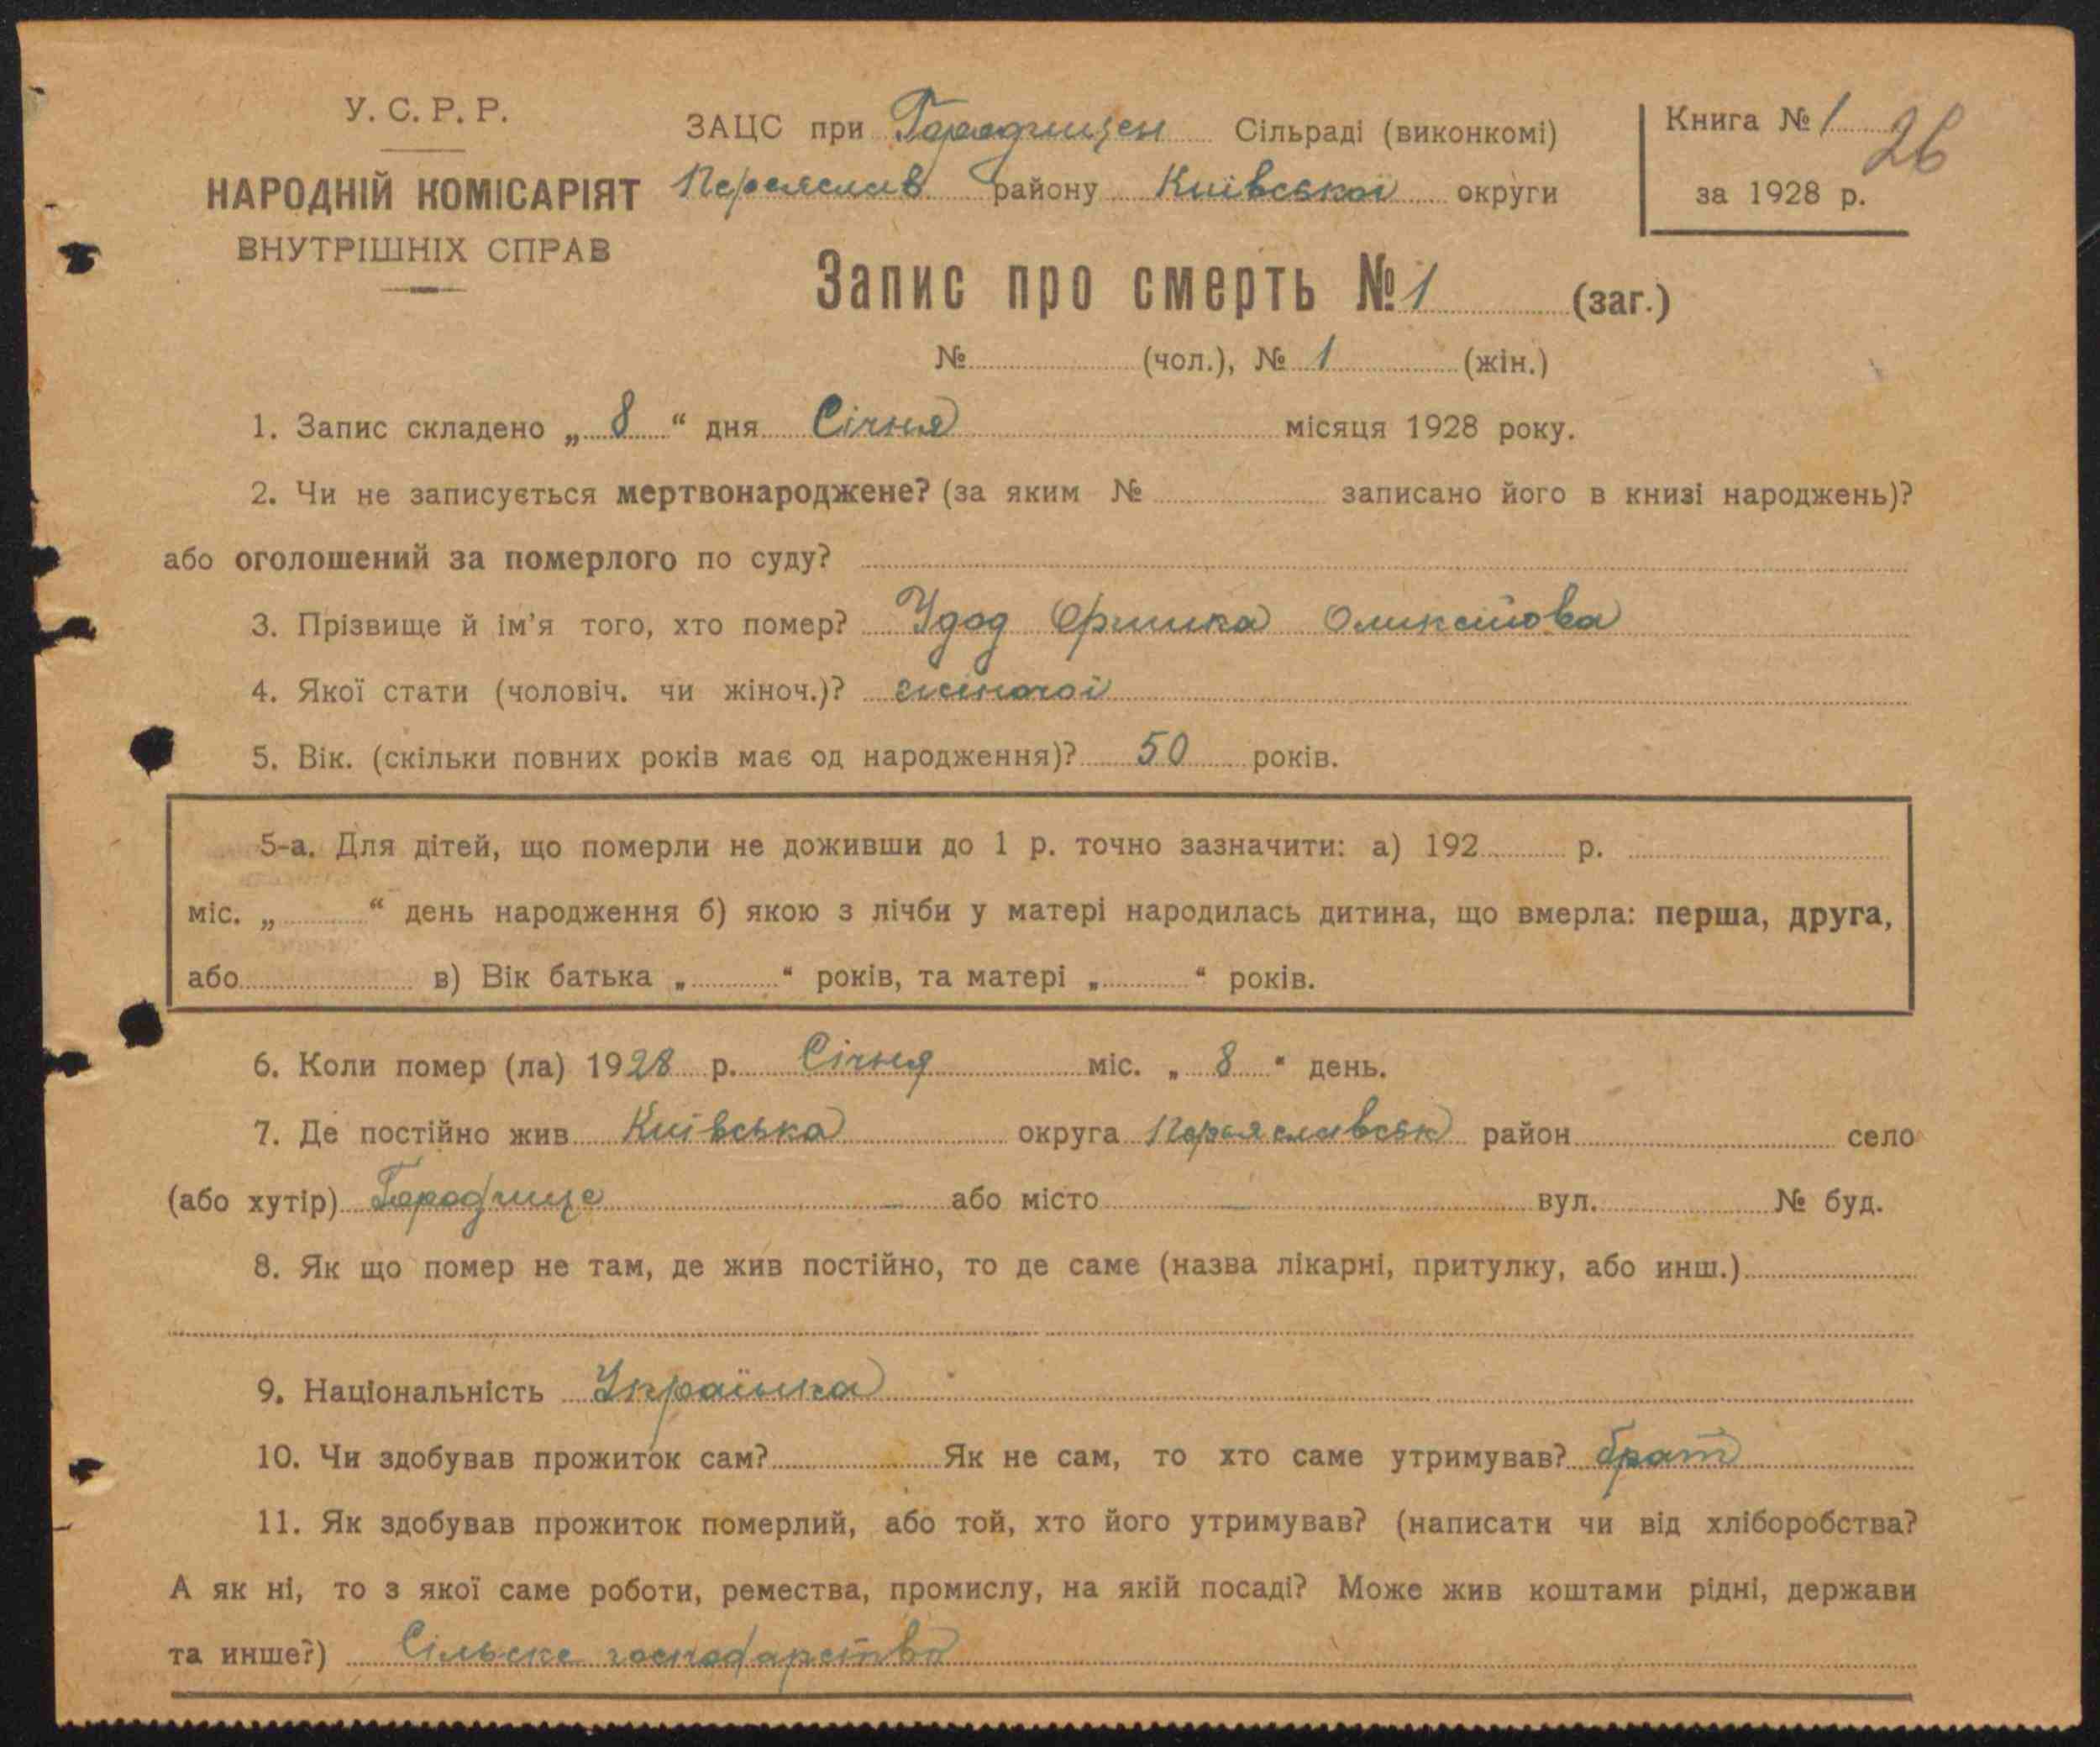 У. С. Р. Р.
НАРОДНІЙ КОМІСАРІЯТ
ВНУТРІШНІХ СПРАВ
ЗАЦС при Городищен Сільраді (виконкомі)
Переяслав району Київської округи
Книга № 1 26
за 1928 р.
Запис про смерть № 1 (заг.)
№ (чол.), № 1 (жін.)
1. Запис складено „ 8 “ дня Січня місяця 1928 року.
2. Чи не записується мертвонароджене? (за яким № записано його в книзі народжень)?
або оголошений за померлого по суду?
3. Прізвище й ім’я того, хто помер? Удод Оришка
4. Якої стати (чоловіч. чи жіноч.)? жіночої
5. Вік. (скільки повних років має од народження)? 50 років.
5-а. Для дітей, що померли не доживши до 1 р. точно зазначити: а) 192 р.
міс. „ “ день народження б) якою з лічби у матері народилась дитина, що вмерла: перша, друга,
або в) Вік батька „ “ років, та матері „ “ років.
6. Коли помер (ла) 1928 р. Січня міс. „ 8 “ день.
7. Де постійно жив Київська округа Переяславськ район село
(або хутір) Городище або місто вул. № буд.
8. Як що помер не там, де жив постійно, то де саме (назва лікарні, притулку, або инш.)
9. Національність Українка
10. Чи здобував прожиток сам? Як не сам, то хто саме утримував? брат
11. Як здобував прожиток померлий, або той, хто його утримував? (написати чи від хліборобства?
А як ні, то з якої саме роботи, ремества, промислу, на якій посаді? Може жив коштами рідні, держави
та инше?) Сільске господарство